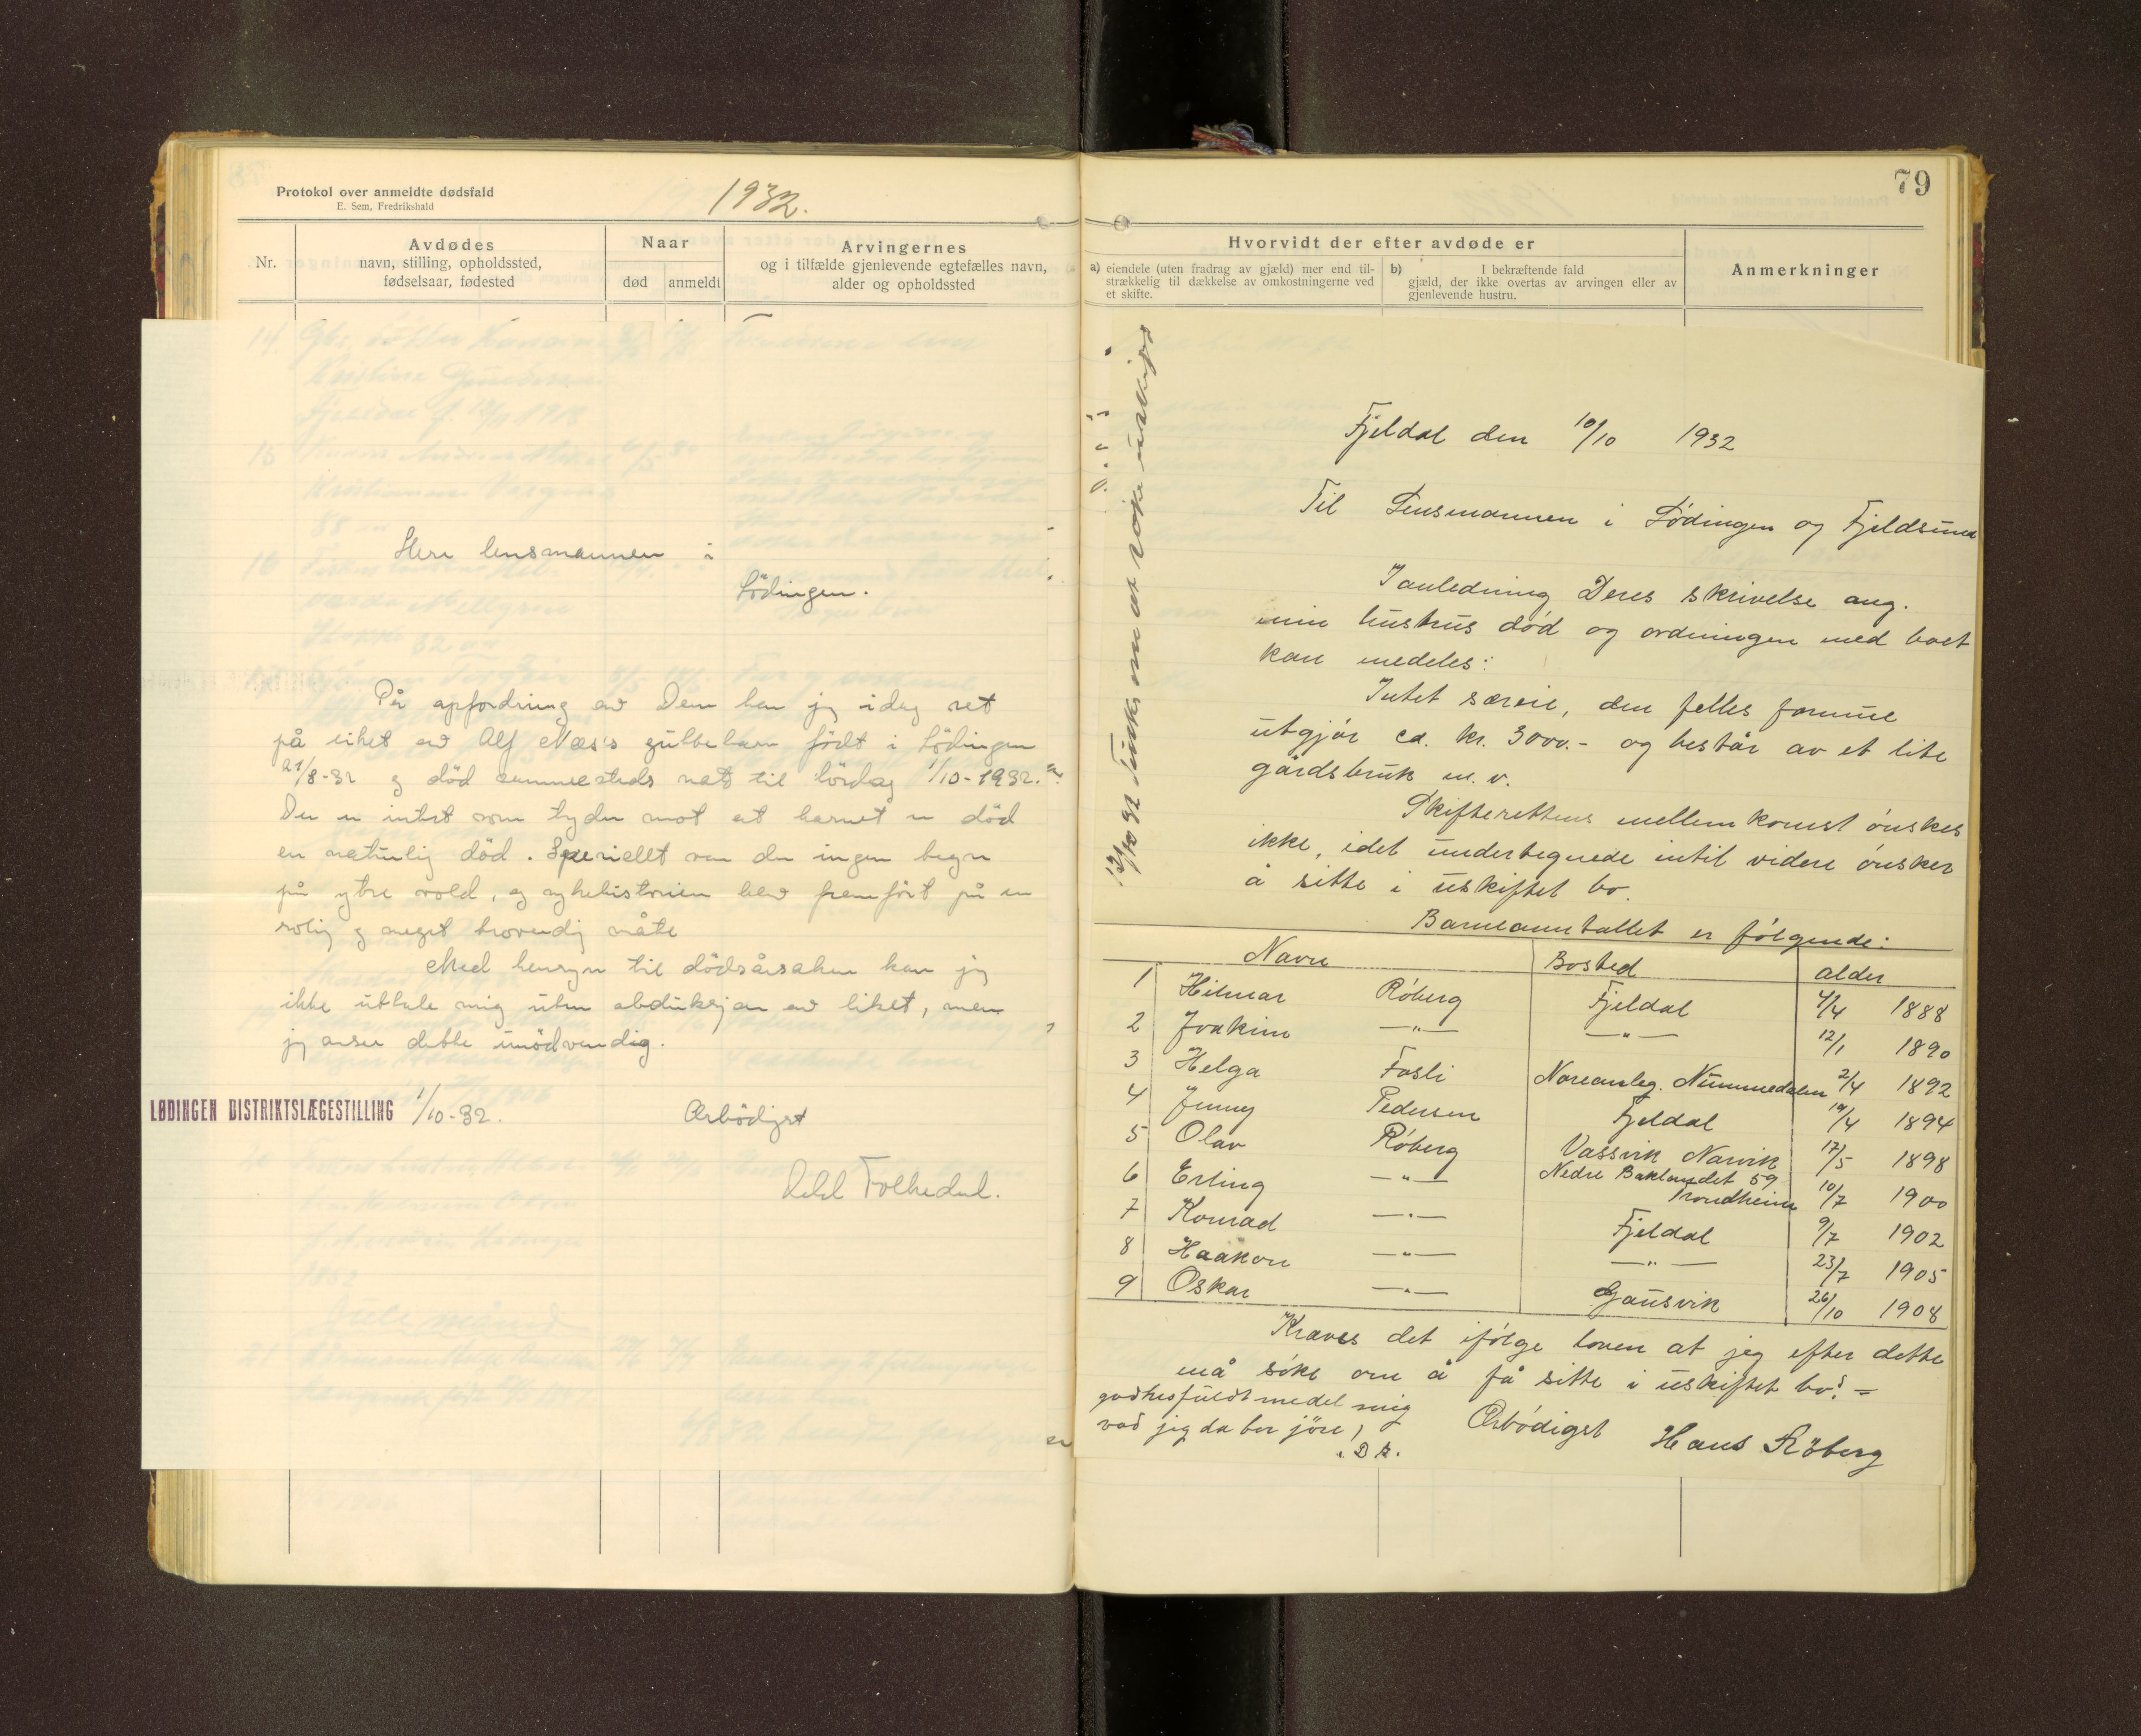 Protokol over anmeldte dødsfald
E. Sem, Fredrikshald
1932.
Nr.
Avdødes
navn, stilling, opholdssted,
fødselsaar, fødested
Naar
død
anmeldt
Arvingernes
og i tilfælde gjenlevende egtefælles navn,
alder og opholdssted
Herr lensmannen i
Lödingen.
På opfordring av Dem har jeg idag set
på liket av Alf Næs's guttebarn födt i Lödingen
21/8-32 og död sammesteds nat til lördag 1/10-1932.
Der er intet som tyder mot at barnet er död
en naturlig död. Specielt var der ingen tegn
på ytre vold, og sykehistorien blev fremfört på en
rolig og meget troverdig måte
Med hensyn til dödsårsaken kan jeg
ikke uttale mig uten obduksjon av liket, men
jeg anser dette unödvendig.
LØDINGEN DISTRIKTSLÆGESTILLING 1/10-32.
Ærbödigst
Folkedal.
79
Hvorvidt der efter avdøde er
a) eiendele (uten fradrag av gjæld) mer end til-
strækkelig til dækkelse av omkostningerne ved
et skifte.
b) I bekræftende fald
gjæld, der ikke overtas av arvingen eller av
gjenlevende hustru.
Anmerkninger
12/10 32 om at söke uskiftet
Fjeldal den 10/10 1932
Til Lensmannen i Lødingen og Fjeldsund
I anledning Deres skrivelse ang.
min hustrus død og ordningen med boet
kan medeles:
Intet særeie, den felles formue
utgjør ca. kr. 3000.- og består av et lite
gårdsbruk m. v.
Skifterettens mellemkomst ønskes
ikke, idet undertegnede intil videre ønsker
å sitte i uskiftet bo.
Barneanntallet er følgende:
Navn Bosted alder
1 Hilmar Røberg Fjeldal 4/4 1888
2 Joakim —"— —"— 12/1 1890
3 Helga Fosli Noreanleg. Nummedalen 2/4 1892
4 Jenny Pedersen Fjeldal 19/4 1894
5 Olav Røberg Vassvik Narvik 17/5 1898
6 Erling —"— Nedre Baklandet 59 Trondheim 10/7 1900
7 Konrad —"— Fjeldal 9/7 1902
8 Haakon —"— —"— 23/7 1905
9 Oskar —"— Gausvik 26/10 1908
Kraves det ifølge loven at jeg efter dette
må søke om å få sitte i uskiftet bo? =
godhesfuldt medel mig
vad jeg da bør jöre,
D. s.
Ærbødigst Hans Röberg